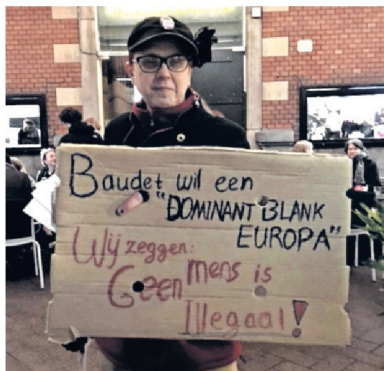 Baudet wil een
"DOMINANT BLANK
EUROPA"
Wij zeggen:
Geen mens is
Illegaal!